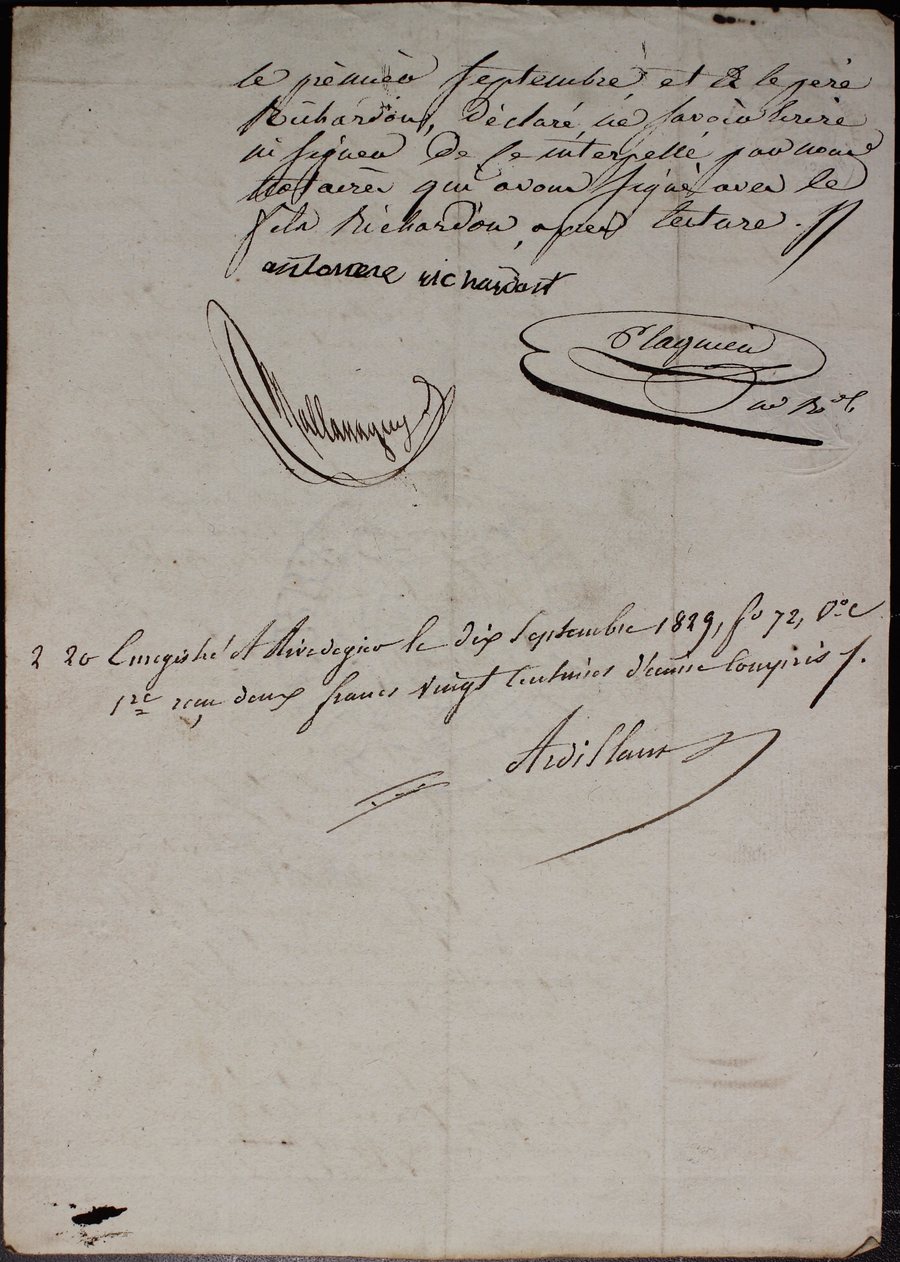 le premier Septembre, et le père
Richardon, déclaré ne savoir écrire
ni signer de ce interpellé par nous
Notaires qui avons signé avec le
fils Richardon, après lecture.
antoine richardont
Plagnieu
2 20 Enregistré A Rivedegier le dix Septembre 1829, fo 72, Vo C
1re reçu deux francs vingt centimes dixme Compris